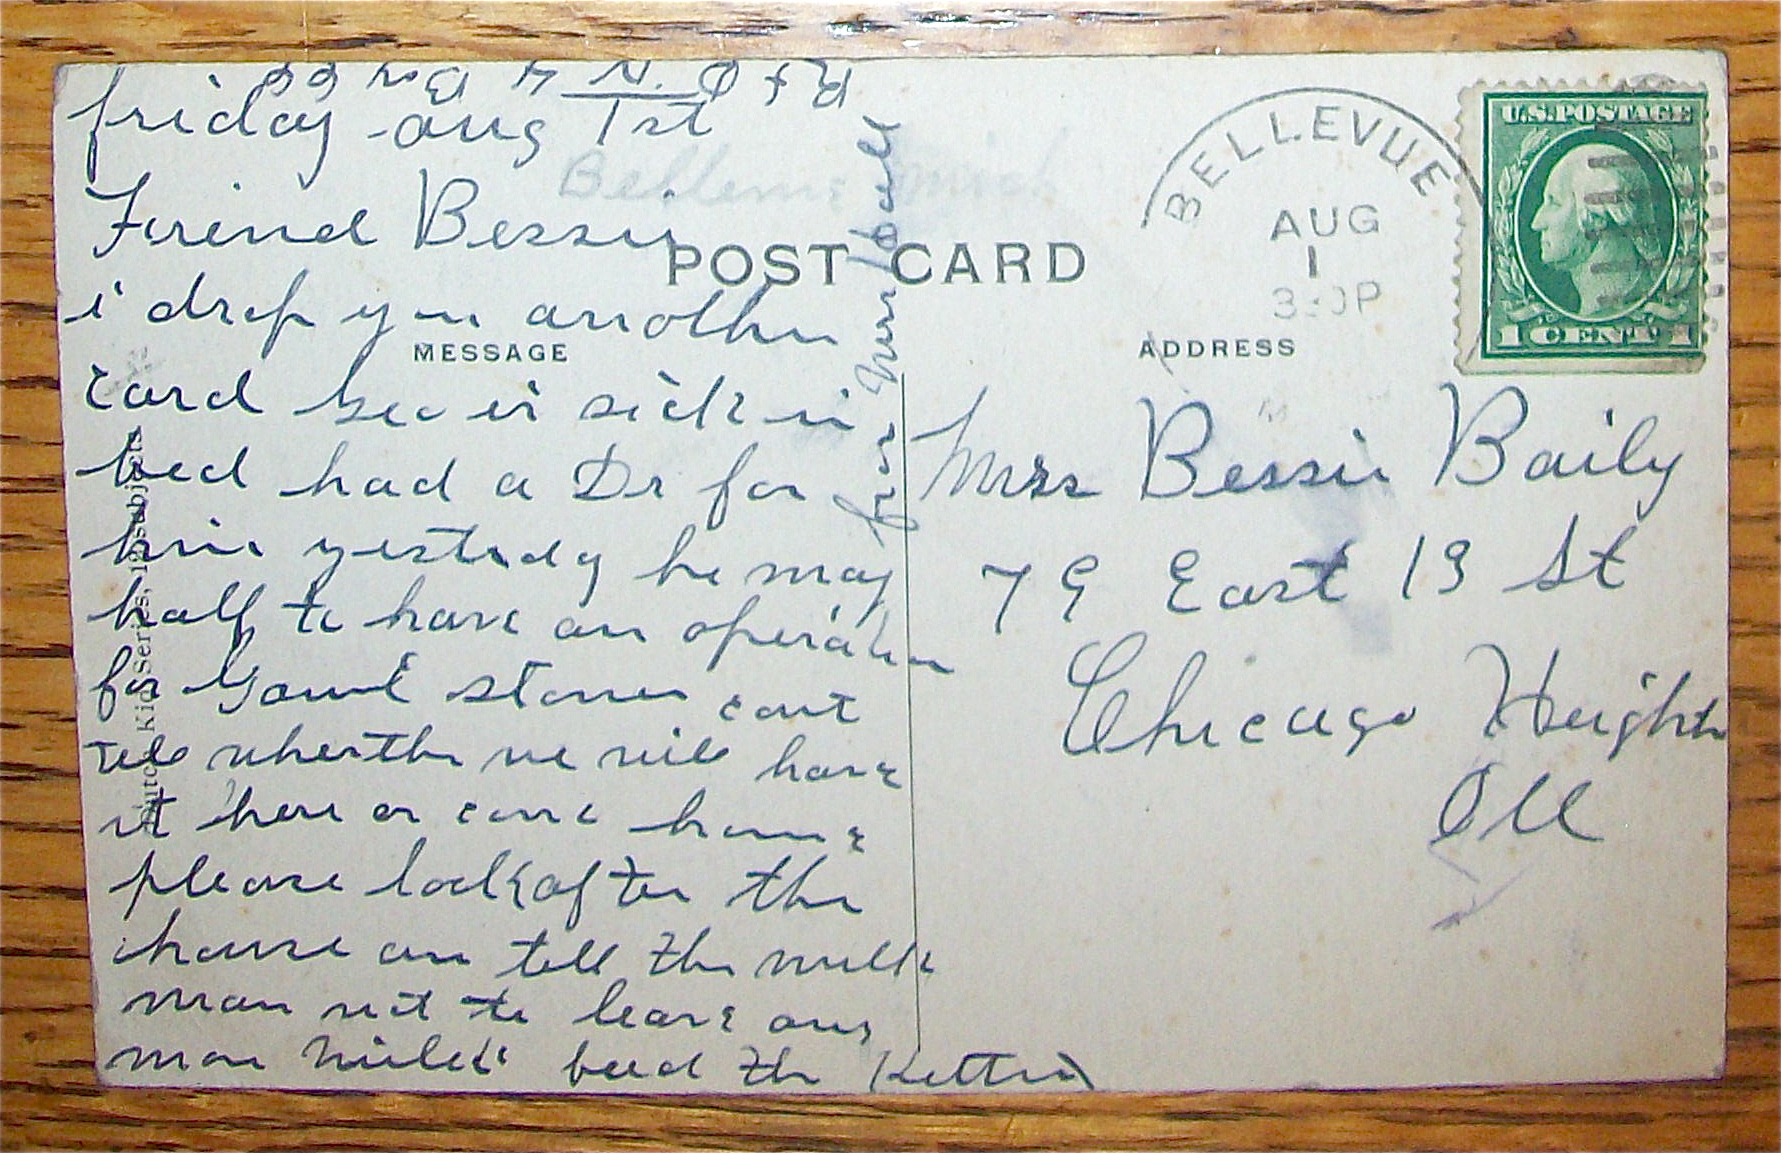 R f D N. 4 Box 66
friday aug 1st
Bellevue Mich
Freind Bessie
i drop you another
card Geo is sick in
bed had a Dr for
him yesterdy he may
half to have an operation
for Gaul stones cant
tell wheather we will have
it here or come home
please look after the
house an tell the milk
man not to leave any
mor milk feed the Kitties
from Mrs
POST CARD
MESSAGE
ADDRESS
Dutch Kid Series, 12 subjects
BELLEVUE
AUG
1
3 0P
U.S. POSTAGE
1 CENT 1
Mrs Bessie Baily
79 East 13 St
Chicago Heights
Ill